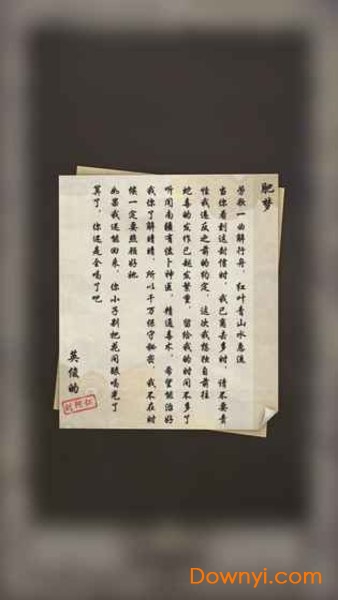 肥梦
劳歌一曲解行舟，红叶青山水急流
当你看到这封信时，我已离去多时，请不要责
怪我违反之前的约定，这次我想独自前往
蛇毒的发作已越发繁重，留给我的时间不多了
听闻南疆有位卜神医，精通毒术，希望能治好
我你了解晴晴，所以千万保守秘密，我不在时
候一定要照顾好她
如果我还能回来，你小子别把花间眼喝光了
算了，你还是全喝了吧
英俊的
Downyi.com